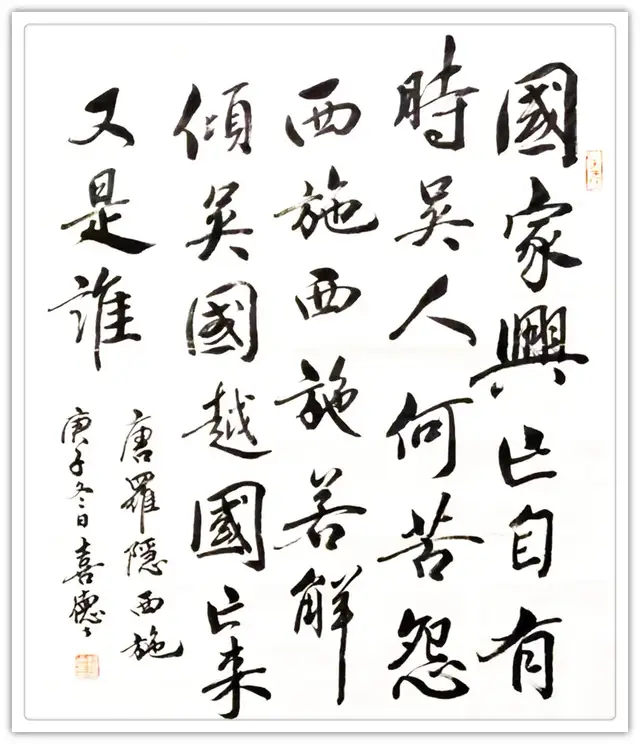 國家興亡自有
時吳人何苦怨
西施西施若解
傾吳國越國亡来
又是誰
唐羅隱西施
庚子冬日喜德